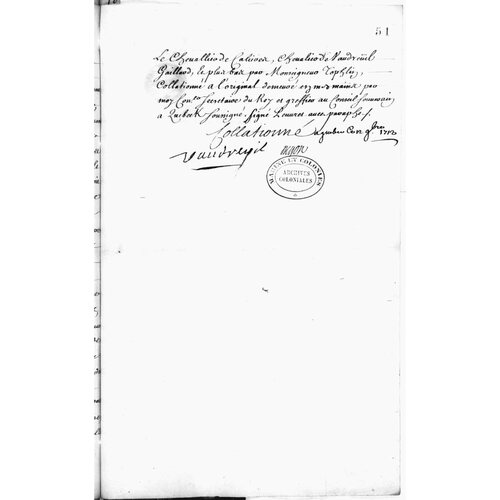 51
Le Chevallier de Calieres, Chevalier de Vaudreüil
Guillard, le plus bas par Monseigneur
Collationné a l'original demeuré en mes mains par
moy Con.er Secretaire du Roy et greffier au Conseil Souverain
a Quebeck Sousigné. Signé avec paraphe./.
Collationné a quebec Ce 12 9bre 1712
Vaudreuil begon
MARINE ET COLONIES
ARCHIVES
COLONIALES